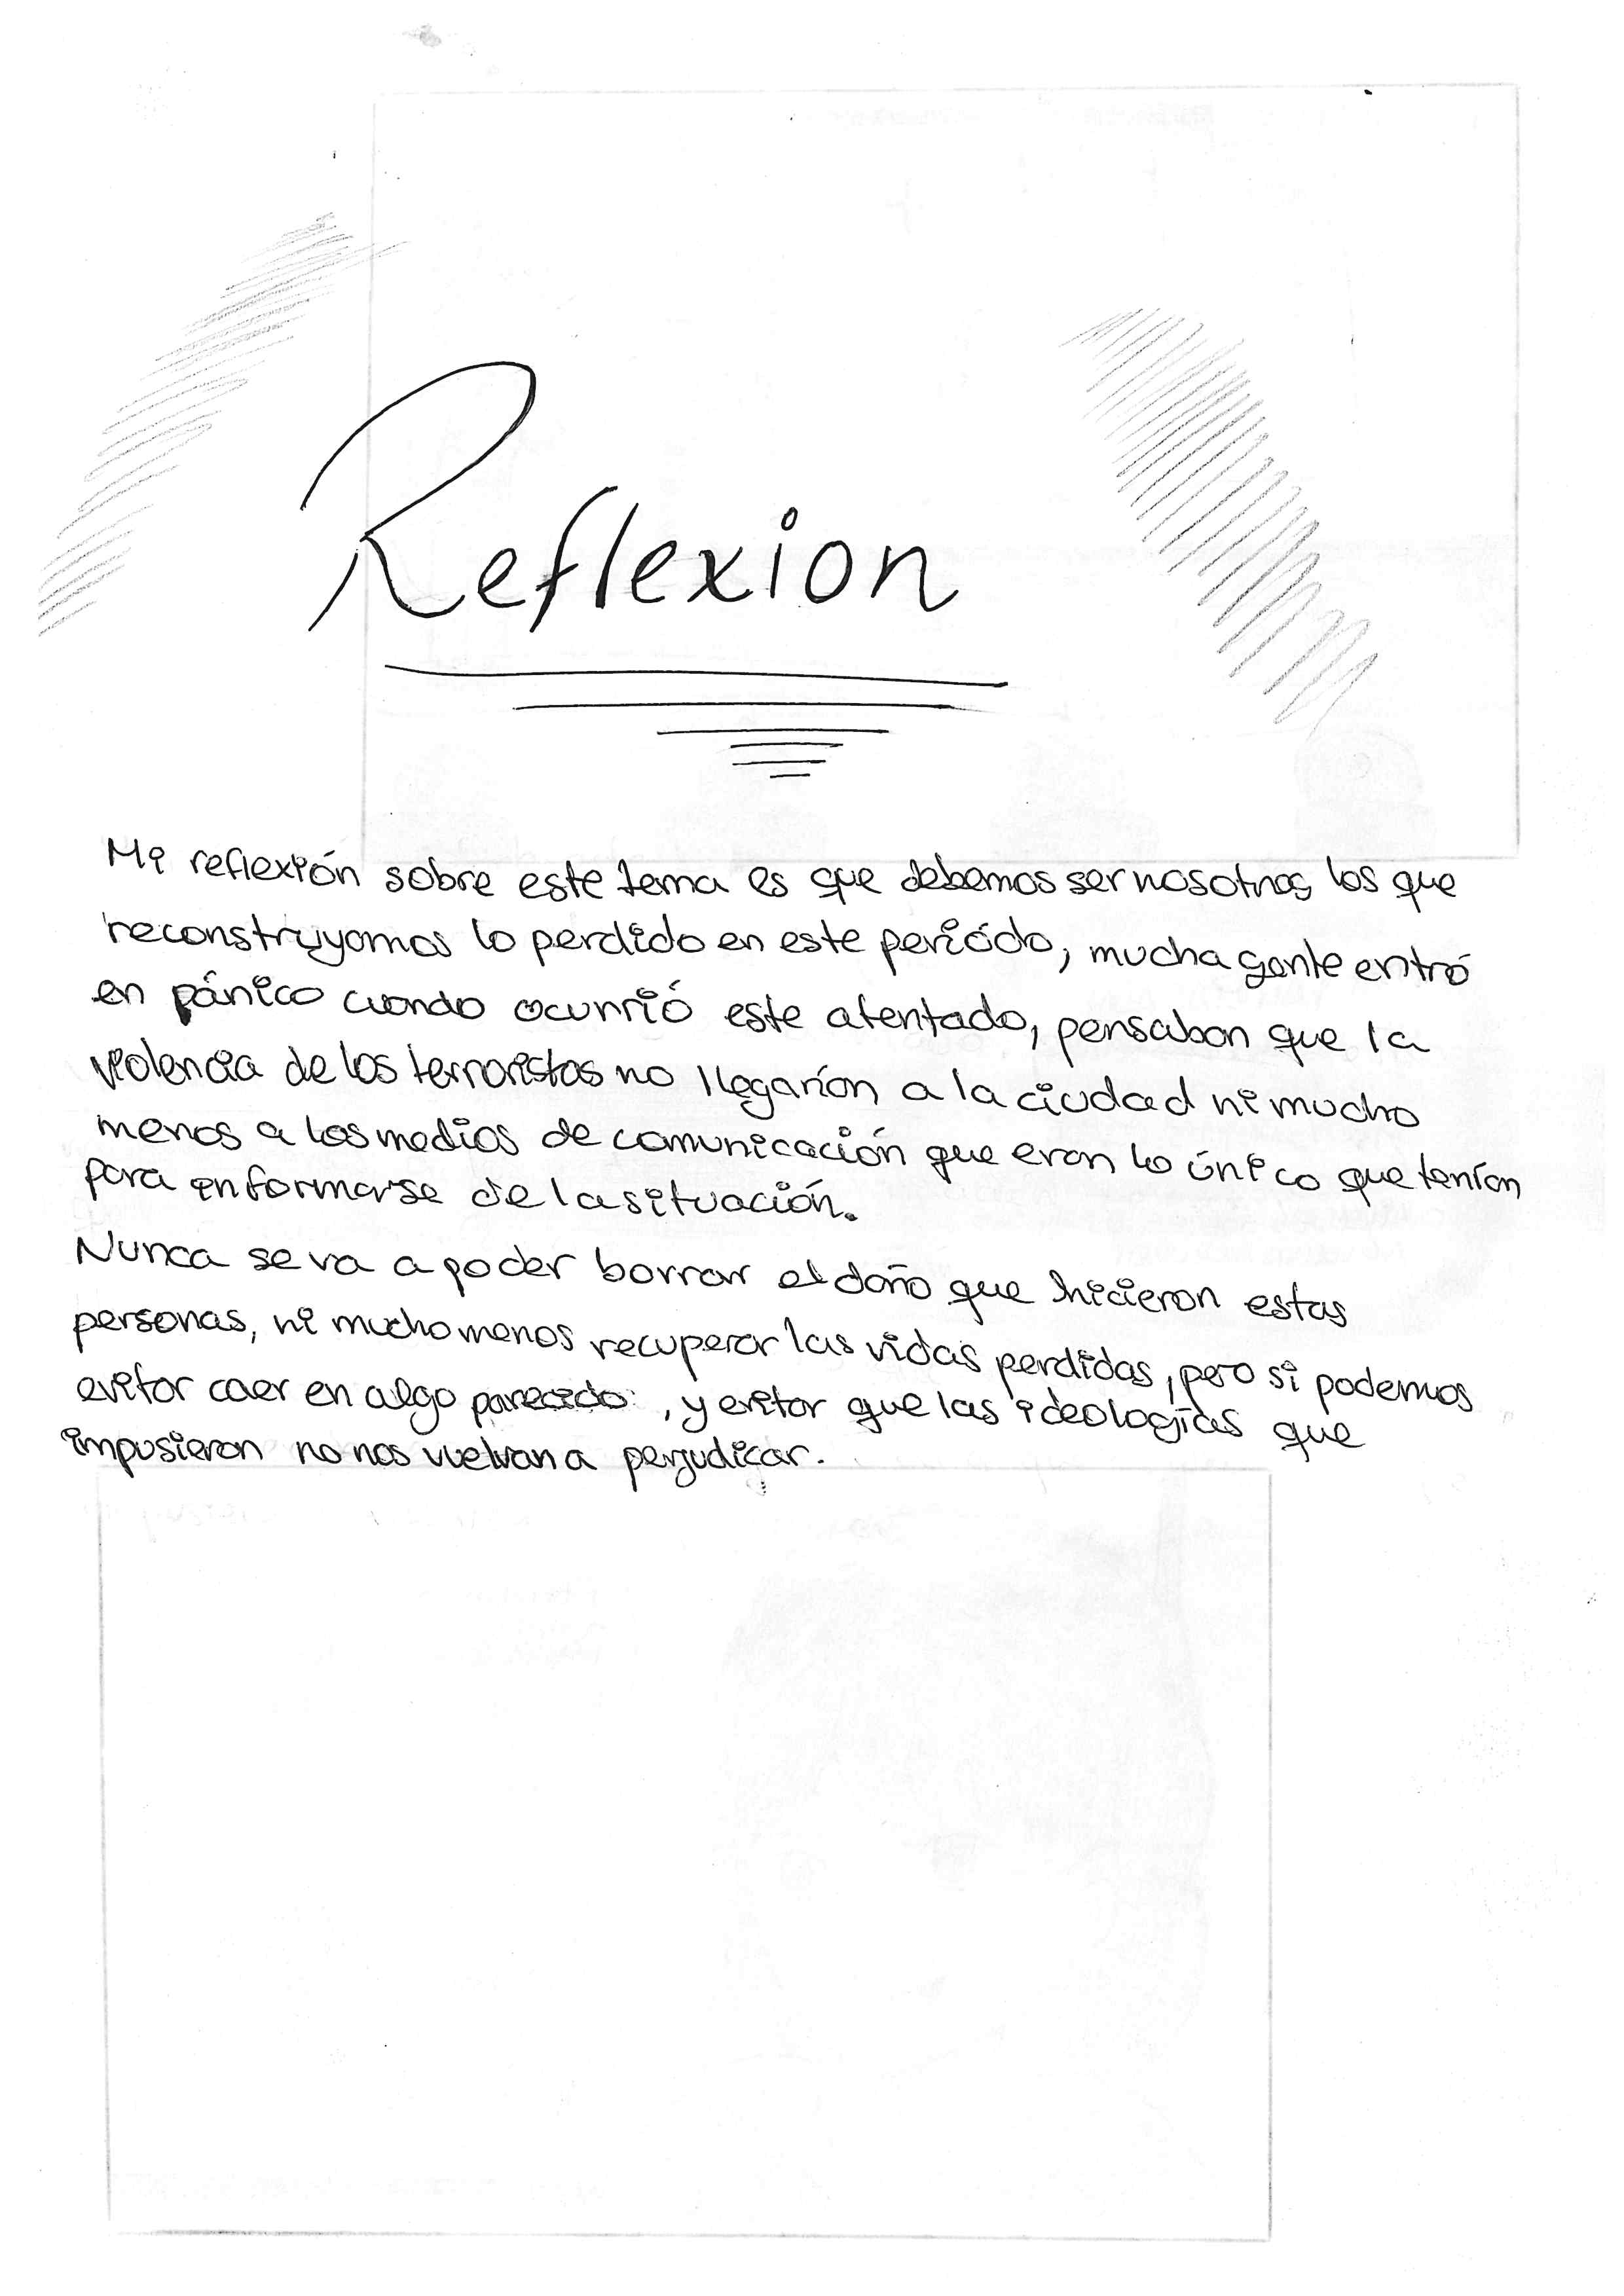 Reflexion
Mi reflexión sobre este tema es que debemos ser nosotros los que
reconstruyamos lo perdido en este periódo, mucha gente entró
en pánico cuando ocurrió este atentado, pensaban que la
violencia de los terroristas no llegarían a la ciudad ni mucho
menos a los medios de comunicación que eran lo único que tenían
para informarse de la situación.
Nunca se va a poder borrar el daño que hicieron estas
personas, ni mucho menos recuperar las vidas perdidas, pero si podemos
evitar caer en algo parecido, y evitar que las ideologías que
impusieron no nos vuelvan a perjudicar.